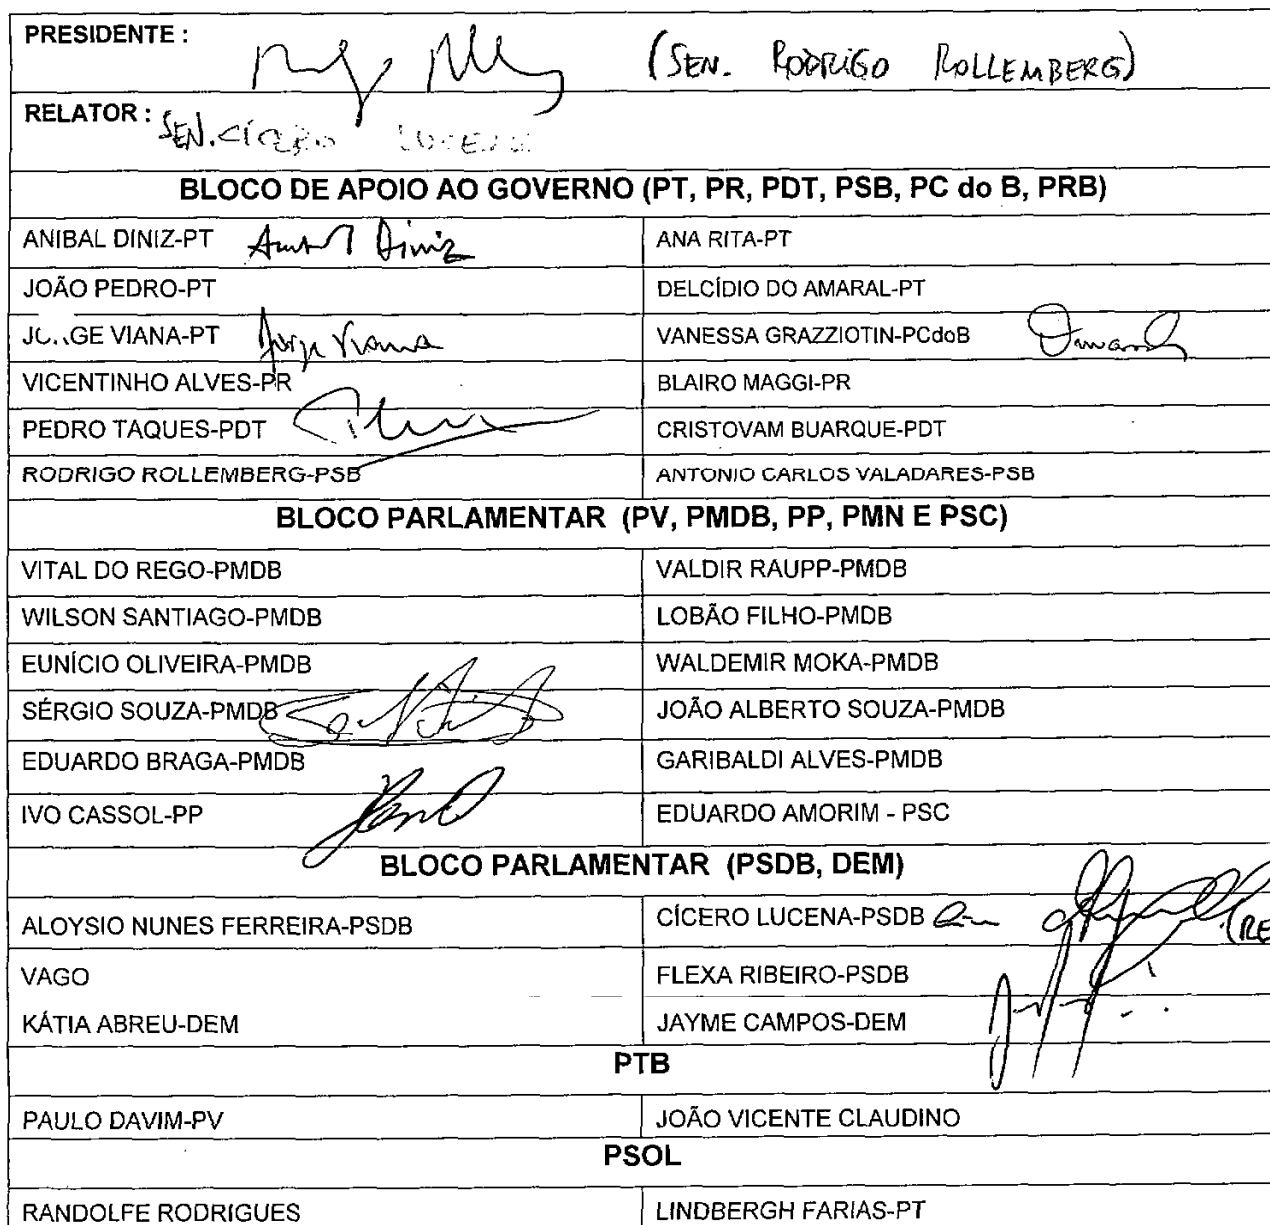 PRESIDENTE : (SEN. RODRIGO ROLLEMBERG)
RELATOR : SEN. CÍCERO LUCENA
BLOCO DE APOIO AO GOVERNO (PT, PR, PDT, PSB, PC do B, PRB)
ANIBAL DINIZ-PT Anibal Diniz ANA RITA-PT
JOÃO PEDRO-PT DELCÍDIO DO AMARAL-PT
JO..GE VIANA-PT Jorge Viana VANESSA GRAZZIOTIN-PCdoB
VICENTINHO ALVES-PR BLAIRO MAGGI-PR
PEDRO TAQUES-PDT CRISTOVAM BUARQUE-PDT
RODRIGO ROLLEMBERG-PSB ANTONIO CARLOS VALADARES-PSB
BLOCO PARLAMENTAR (PV, PMDB, PP, PMN E PSC)
VITAL DO REGO-PMDB VALDIR RAUPP-PMDB
WILSON SANTIAGO-PMDB LOBÃO FILHO-PMDB
EUNÍCIO OLIVEIRA-PMDB WALDEMIR MOKA-PMDB
SÉRGIO SOUZA-PMDB JOÃO ALBERTO SOUZA-PMDB
EDUARDO BRAGA-PMDB GARIBALDI ALVES-PMDB
IVO CASSOL-PP EDUARDO AMORIM - PSC
BLOCO PARLAMENTAR (PSDB, DEM)
ALOYSIO NUNES FERREIRA-PSDB CÍCERO LUCENA-PSDB (RE
VAGO FLEXA RIBEIRO-PSDB
KÁTIA ABREU-DEM JAYME CAMPOS-DEM
PTB
PAULO DAVIM-PV JOÃO VICENTE CLAUDINO
PSOL
RANDOLFE RODRIGUES LINDBERGH FARIAS-PT